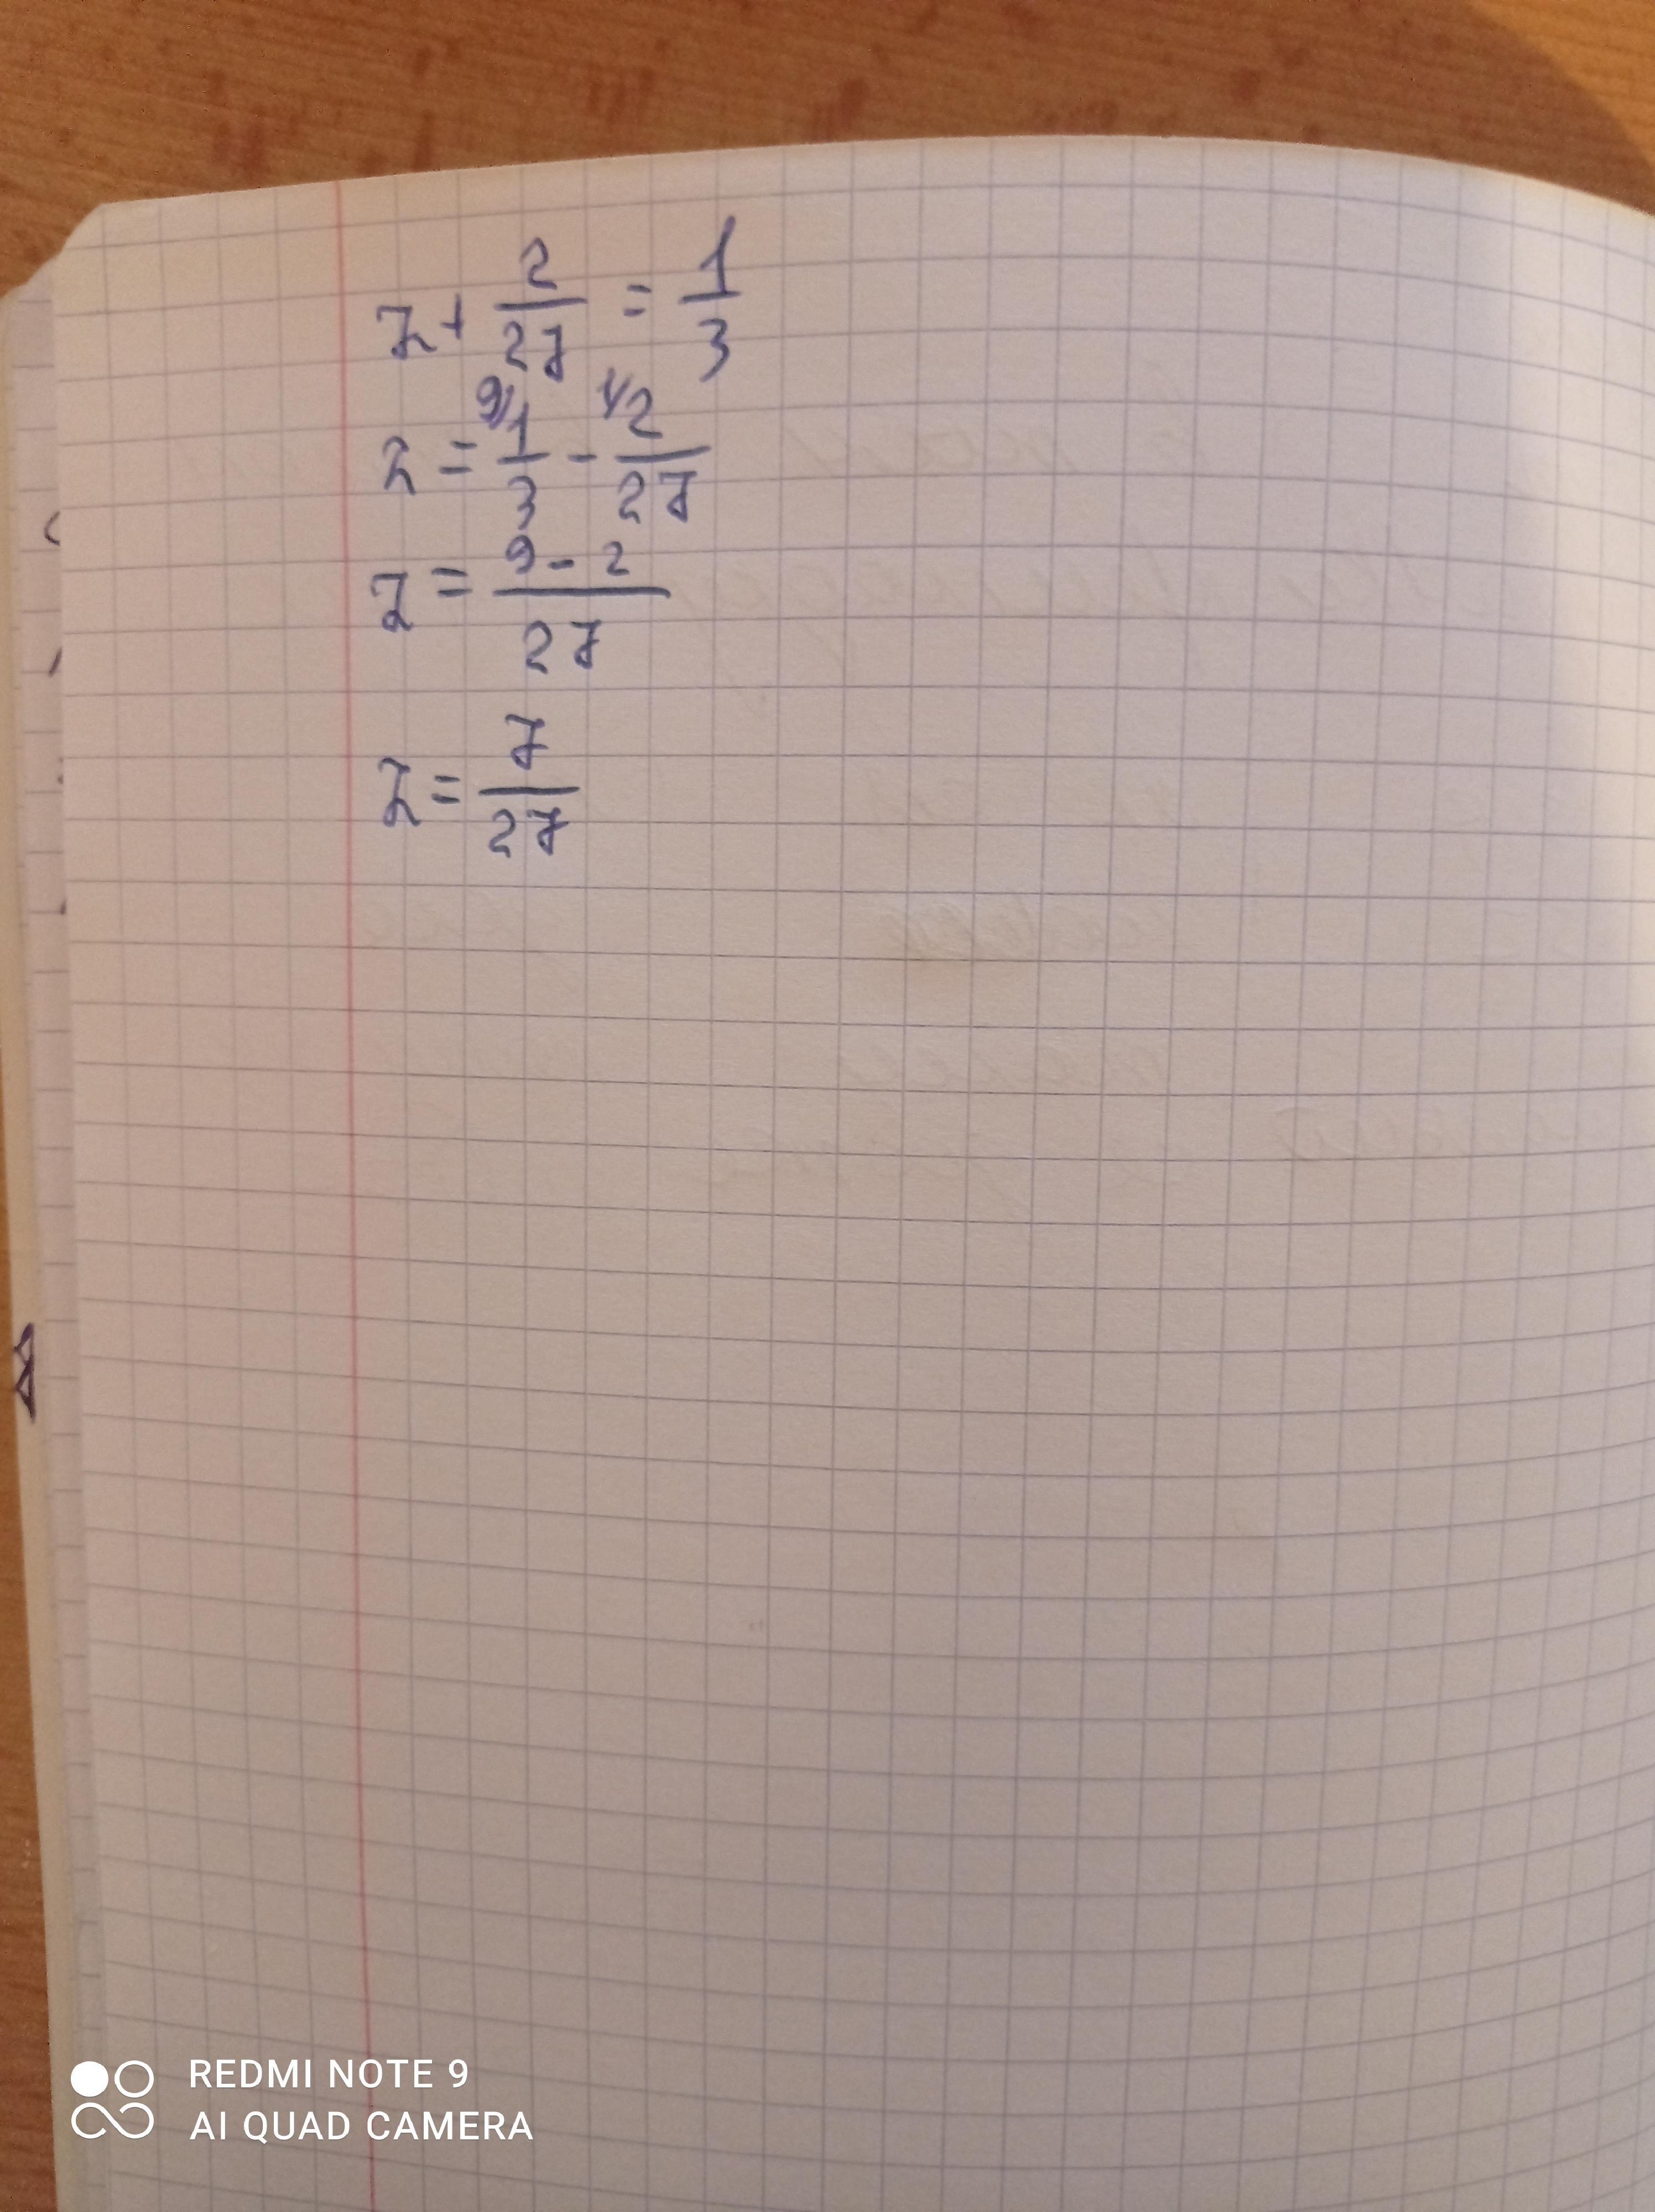 z + 2/27 = 1/3
z = 9/ 1/3 - 1/ 2/27
z = 9 - 2 / 27
z = 7/27
REDMI NOTE 9
AI QUAD CAMERA